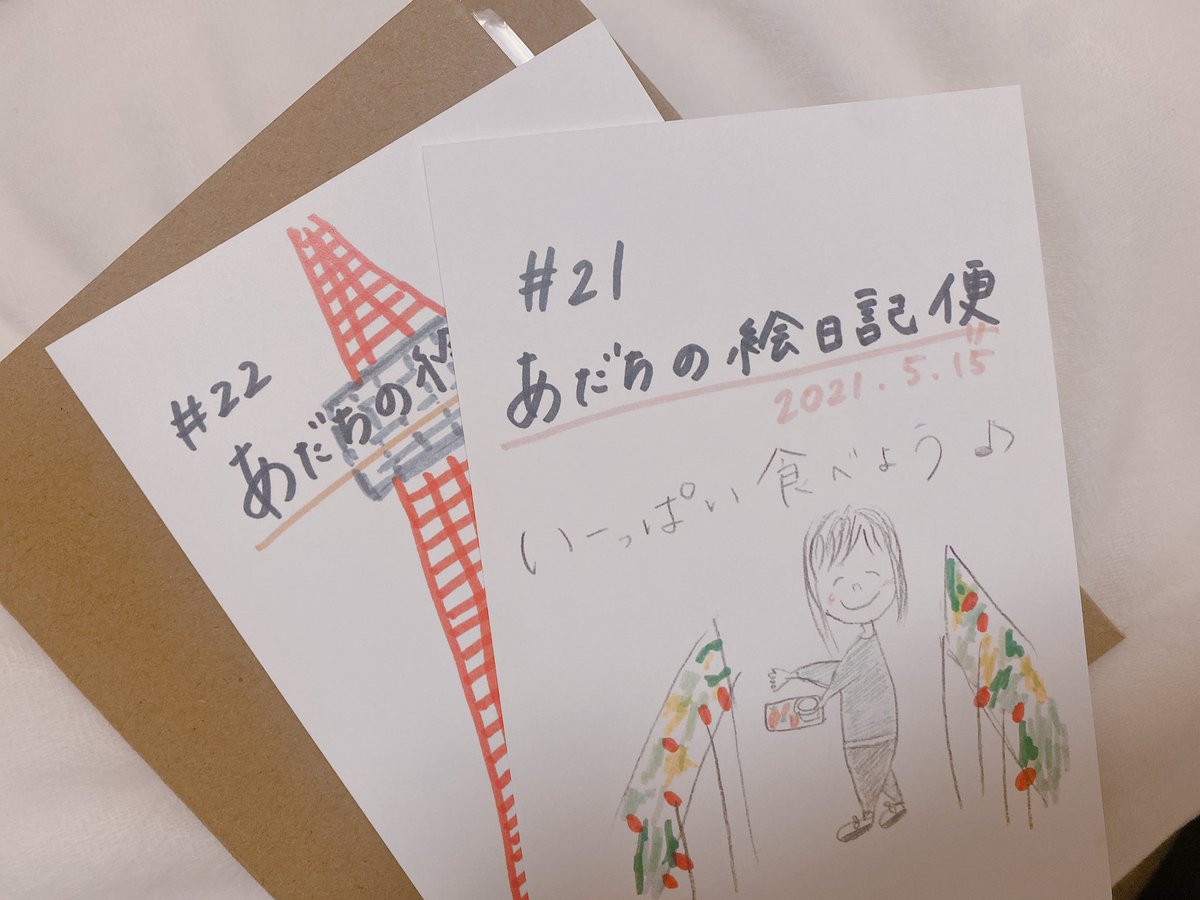 #22
あだちの絵
#21
あだちの絵日記便
2021.5.15
いーっぱい食べよう♪